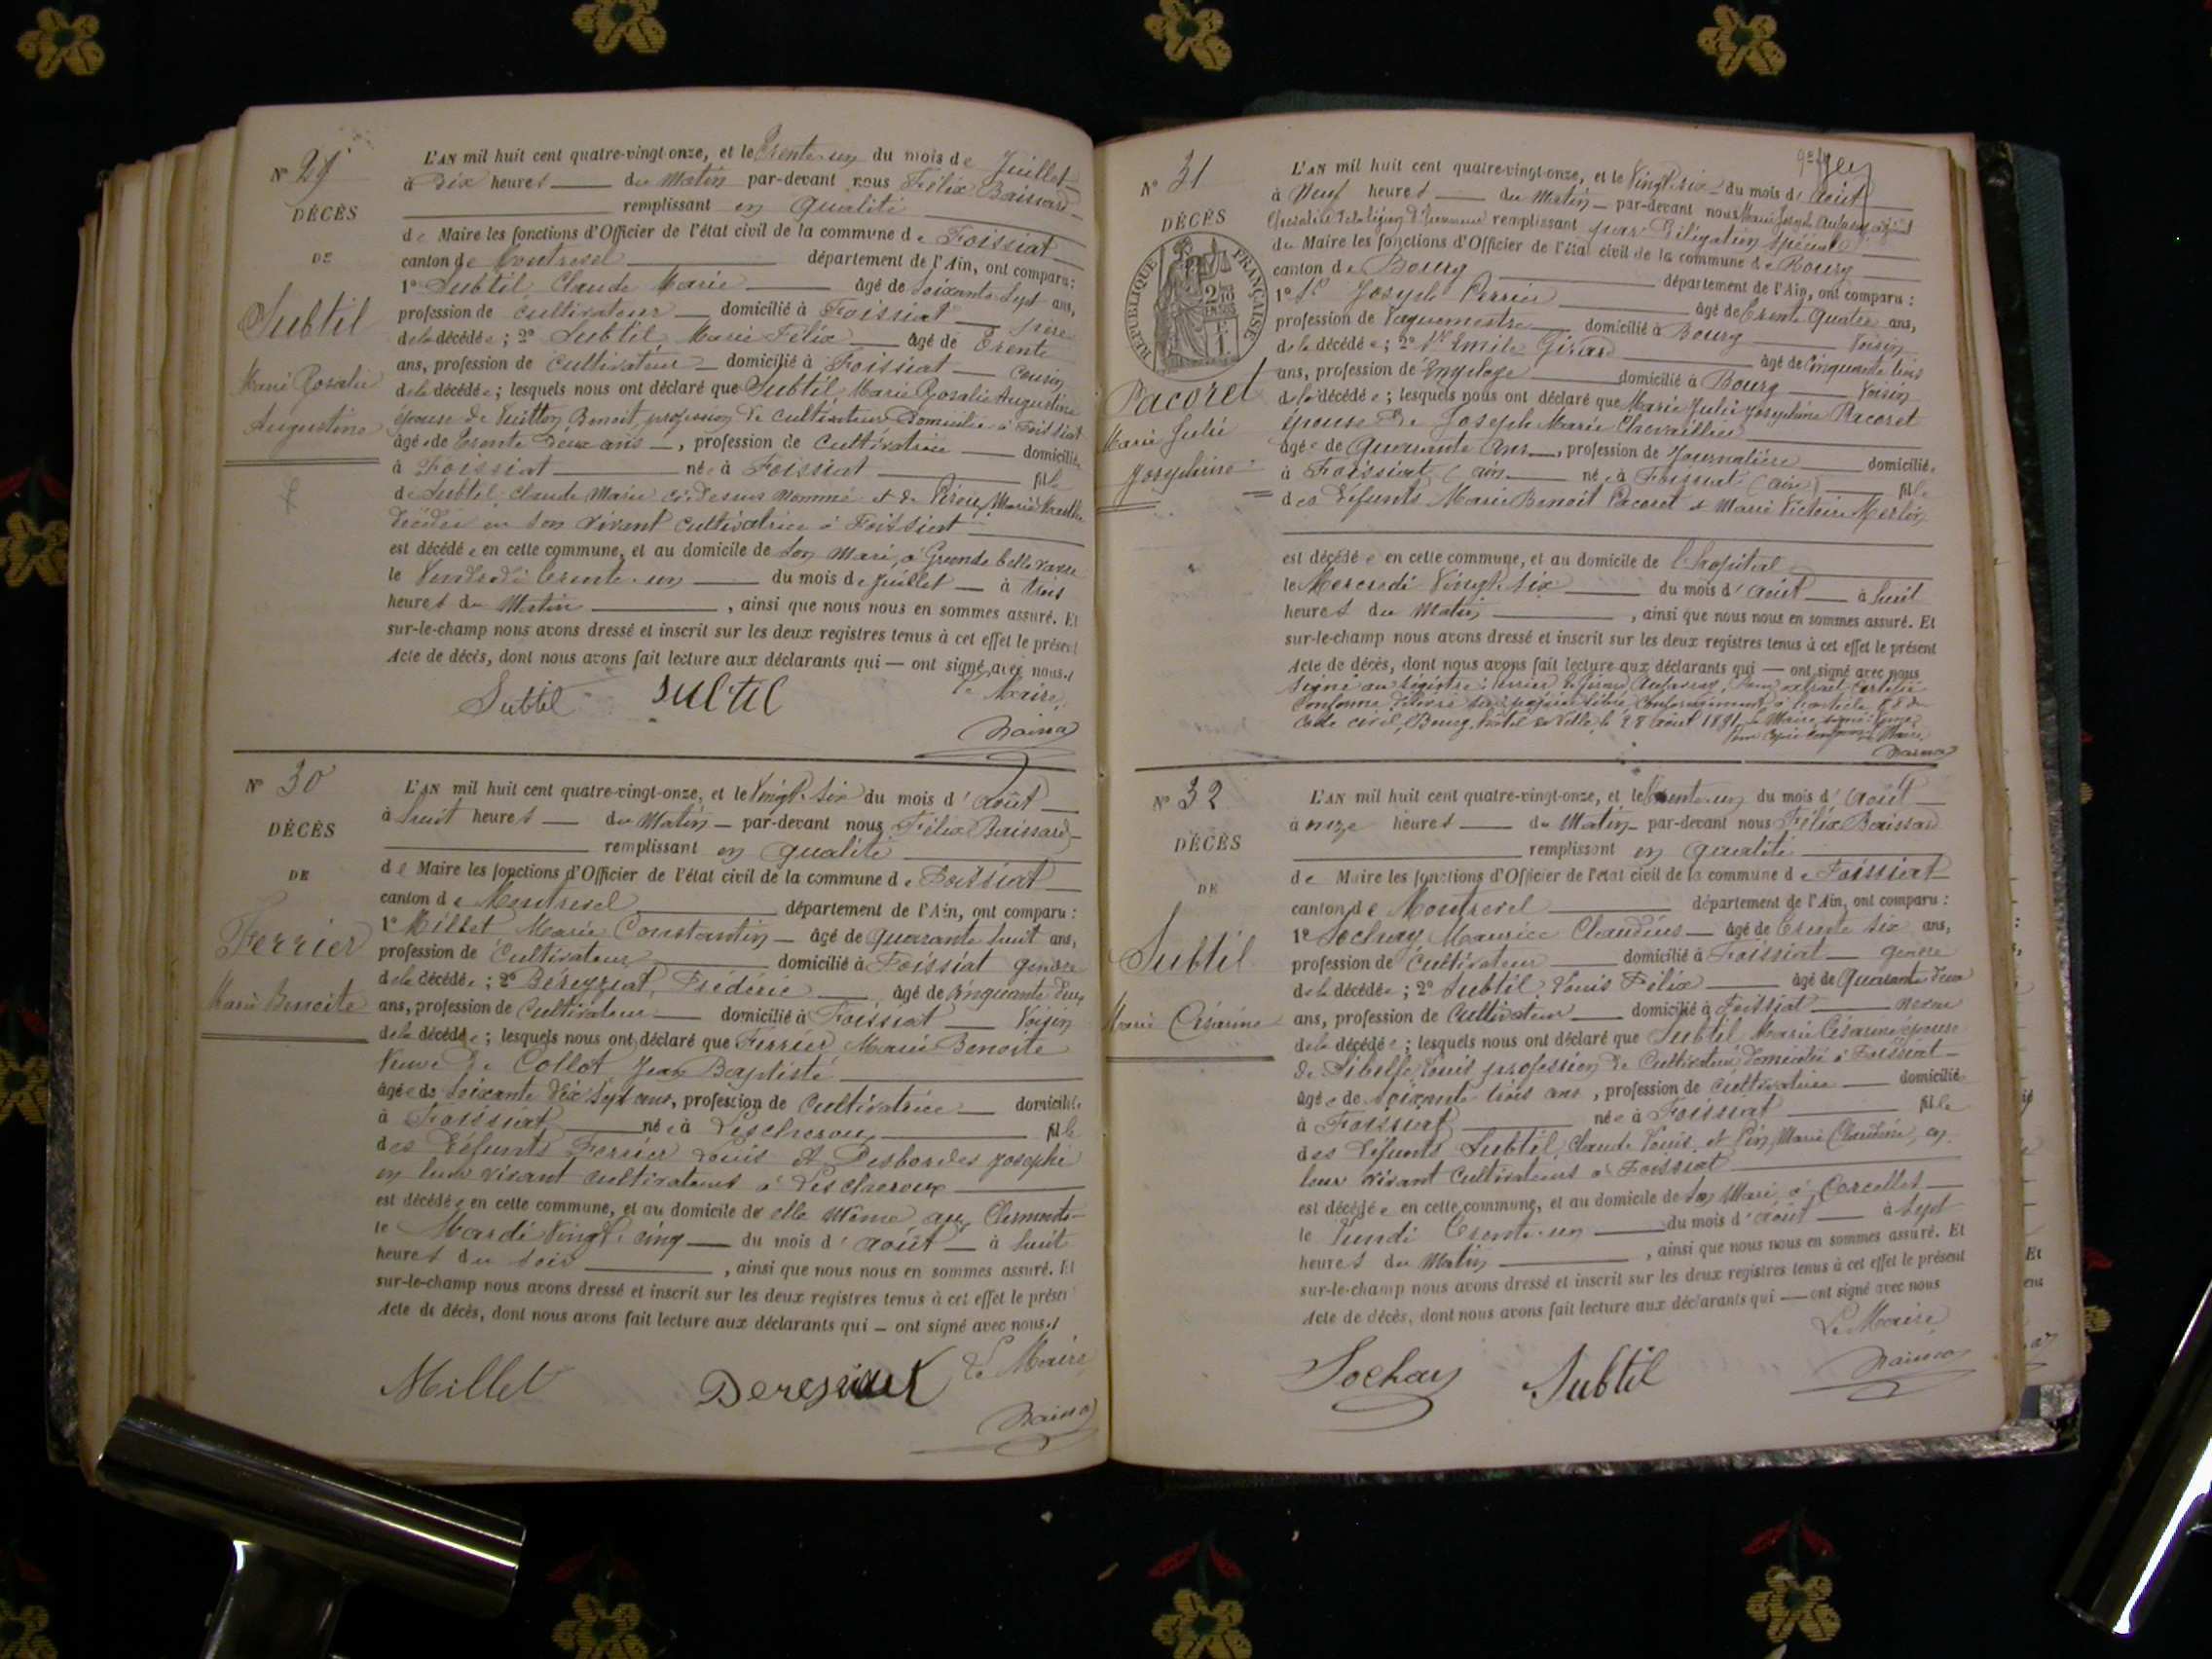 N° 29
DÉCÈS
DE
Subtil
Marie Rosalie
Augustine
L'AN mil huit cent quatre-vingt-onze, et le Trente-un du mois de Juillet
à Dix heures du Matin par-devant nous Félix Baissard
remplissant en qualité
de Maire les fonctions d'Officier de l'état civil de la commune de Foissiat
canton de Montrevel département de l'Ain, ont comparu :
1° Subtil Claude Marie âgé de Soixante Sept ans,
profession de Cultivateur domicilié à Foissiat père
de la décédée ; 2° Subtil Marie Félix âgé de Trente
ans, profession de Cultivateur domicilié à Foissiat Cousin
de la décédée ; lesquels nous ont déclaré que Subtil Marie Rosalie Augustine
épouse de Benoit, profession de Cultivateur Domicilié à Foissiat
âgée de Trente Deux ans, profession de Cultivatrice domiciliée
à Foissiat née à Foissiat fille
de Subtil Claude Marie ci-dessus nommé et de Marie
décédée en son vivant cultivatrice à Foissiat
est décédée en cette commune, et au domicile de son Mari, à Grande
le Vendredi Trente-un du mois de Juillet à trois
heures du Matin, ainsi que nous nous en sommes assuré. Et
sur-le-champ nous avons dressé et inscrit sur les deux registres tenus à cet effet le présent
Acte de décès, dont nous avons fait lecture aux déclarants qui — ont signé avec nous.
Subtil Subtil Le Maire,
N° 30
DÉCÈS
DE
Ferrier
Marie Benoite
L'AN mil huit cent quatre-vingt-onze, et le Vingt-six du mois d'Août
à huit heures du Matin par-devant nous Félix Baissard
remplissant en qualité
de Maire les fonctions d'Officier de l'état civil de la commune de Foissiat
canton de Montrevel département de l'Ain, ont comparu :
1° Millet Marie Constantin âgé de Quarante huit ans,
profession de Cultivateur domicilié à Foissiat gendre
de la décédée ; 2° Béreyziat, Frédéric âgé de Cinquante Deux
ans, profession de Cultivateur domicilié à Foissiat Voisin
de la décédée ; lesquels nous ont déclaré que Ferrier Marie Benoite
Veuve de Collot Jean Baptiste
âgée de Soixante Dix Sept ans, profession de Cultivatrice domiciliée
à Foissiat née à Lescheroux fille
des Défunts Ferrier Louis et Desbordes Josephe
en leur vivant cultivateurs à Lescheroux
est décédée en cette commune, et au domicile de elle même
le Mardi Vingt-cinq du mois d'Août à huit
heures du soir, ainsi que nous nous en sommes assuré. Et
sur-le-champ nous avons dressé et inscrit sur les deux registres tenus à cet effet le présent
Acte de décès, dont nous avons fait lecture aux déclarants qui — ont signé avec nous.
Millet Le Maire
N° 31
DÉCÈS
RÉPUBLIQUE FRANÇAISE
Pacoret
Marie Julie
Joséphine
L'AN mil huit cent quatre-vingt-onze, et le Vingt-six du mois d'Août
à Neuf heures du Matin par-devant nous Marie Joseph
remplissant par Délégation Spéciale
du Maire les fonctions d'Officier de l'état civil de la commune de Bourg
canton de Bourg département de l'Ain, ont comparu :
1° Sr Joseph Perrier âgé de Trente Quatre ans,
profession de Vaguemestre domicilié à Bourg Voisin
de la décédée ; 2° Sr Emile Girard âgé de Cinquante trois
ans, profession de Employé domicilié à Bourg Voisin
de la décédée ; lesquels nous ont déclaré que Marie Julie Joséphine Pacoret
épouse de Joseph Marie Chevaillier
âgée de Quarante ans, profession de Journalière domiciliée
à Foissiat (Ain) née à Foissiat (Ain) fille
des Défunts Marie Benoit Pacoret et Marie Victoire Merlin
est décédée en cette commune, et au domicile de l'hôpital
le Mercredi Vingt-six du mois d'Août à huit
heures du Matin, ainsi que nous nous en sommes assuré. Et
sur-le-champ nous avons dressé et inscrit sur les deux registres tenus à cet effet le présent
Acte de décès, dont nous avons fait lecture aux déclarants qui — ont signé avec nous
Signé au registre : Perrier
conforme Délivré conformément à l'article
Code civil, Bourg, hôtel de Ville, le 28 Août 1891, Le Maire
Pour Copie conforme Le Maire
N° 32
DÉCÈS
DE
Subtil
Marie Césarine
L'AN mil huit cent quatre-vingt-onze, et le Trente-un du mois d'Août
à onze heures du Matin par-devant nous Félix Baissard
remplissant en qualité
de Maire les fonctions d'Officier de l'état civil de la commune de Foissiat
canton de Montrevel département de l'Ain, ont comparu :
1° Sochay Maurice Claudius âgé de Trente Six ans,
profession de Cultivateur domicilié à Foissiat gendre
de la décédée ; 2° Subtil Louis Félix âgé de Quarante Deux
ans, profession de Cultivateur domicilié à Foissiat Neveu
de la décédée ; lesquels nous ont déclaré que Subtil Marie Césarine épouse
de Louis profession de Cultivateur domicilié à Foissiat
âgée de Soixante trois ans, profession de Cultivatrice domiciliée
à Foissiat née à Foissiat fille
des Défunts Subtil, Claude Louis et Marie Claudine, en
leur vivant Cultivateurs à Foissiat
est décédée en cette commune, et au domicile de son Mari, à Corcelles
le Lundi Trente-un du mois d'Août à Sept
heures du Matin, ainsi que nous nous en sommes assuré. Et
sur-le-champ nous avons dressé et inscrit sur les deux registres tenus à cet effet le présent
Acte de décès, dont nous avons fait lecture aux déclarants qui — ont signé avec nous
Le Maire
Sochay Subtil